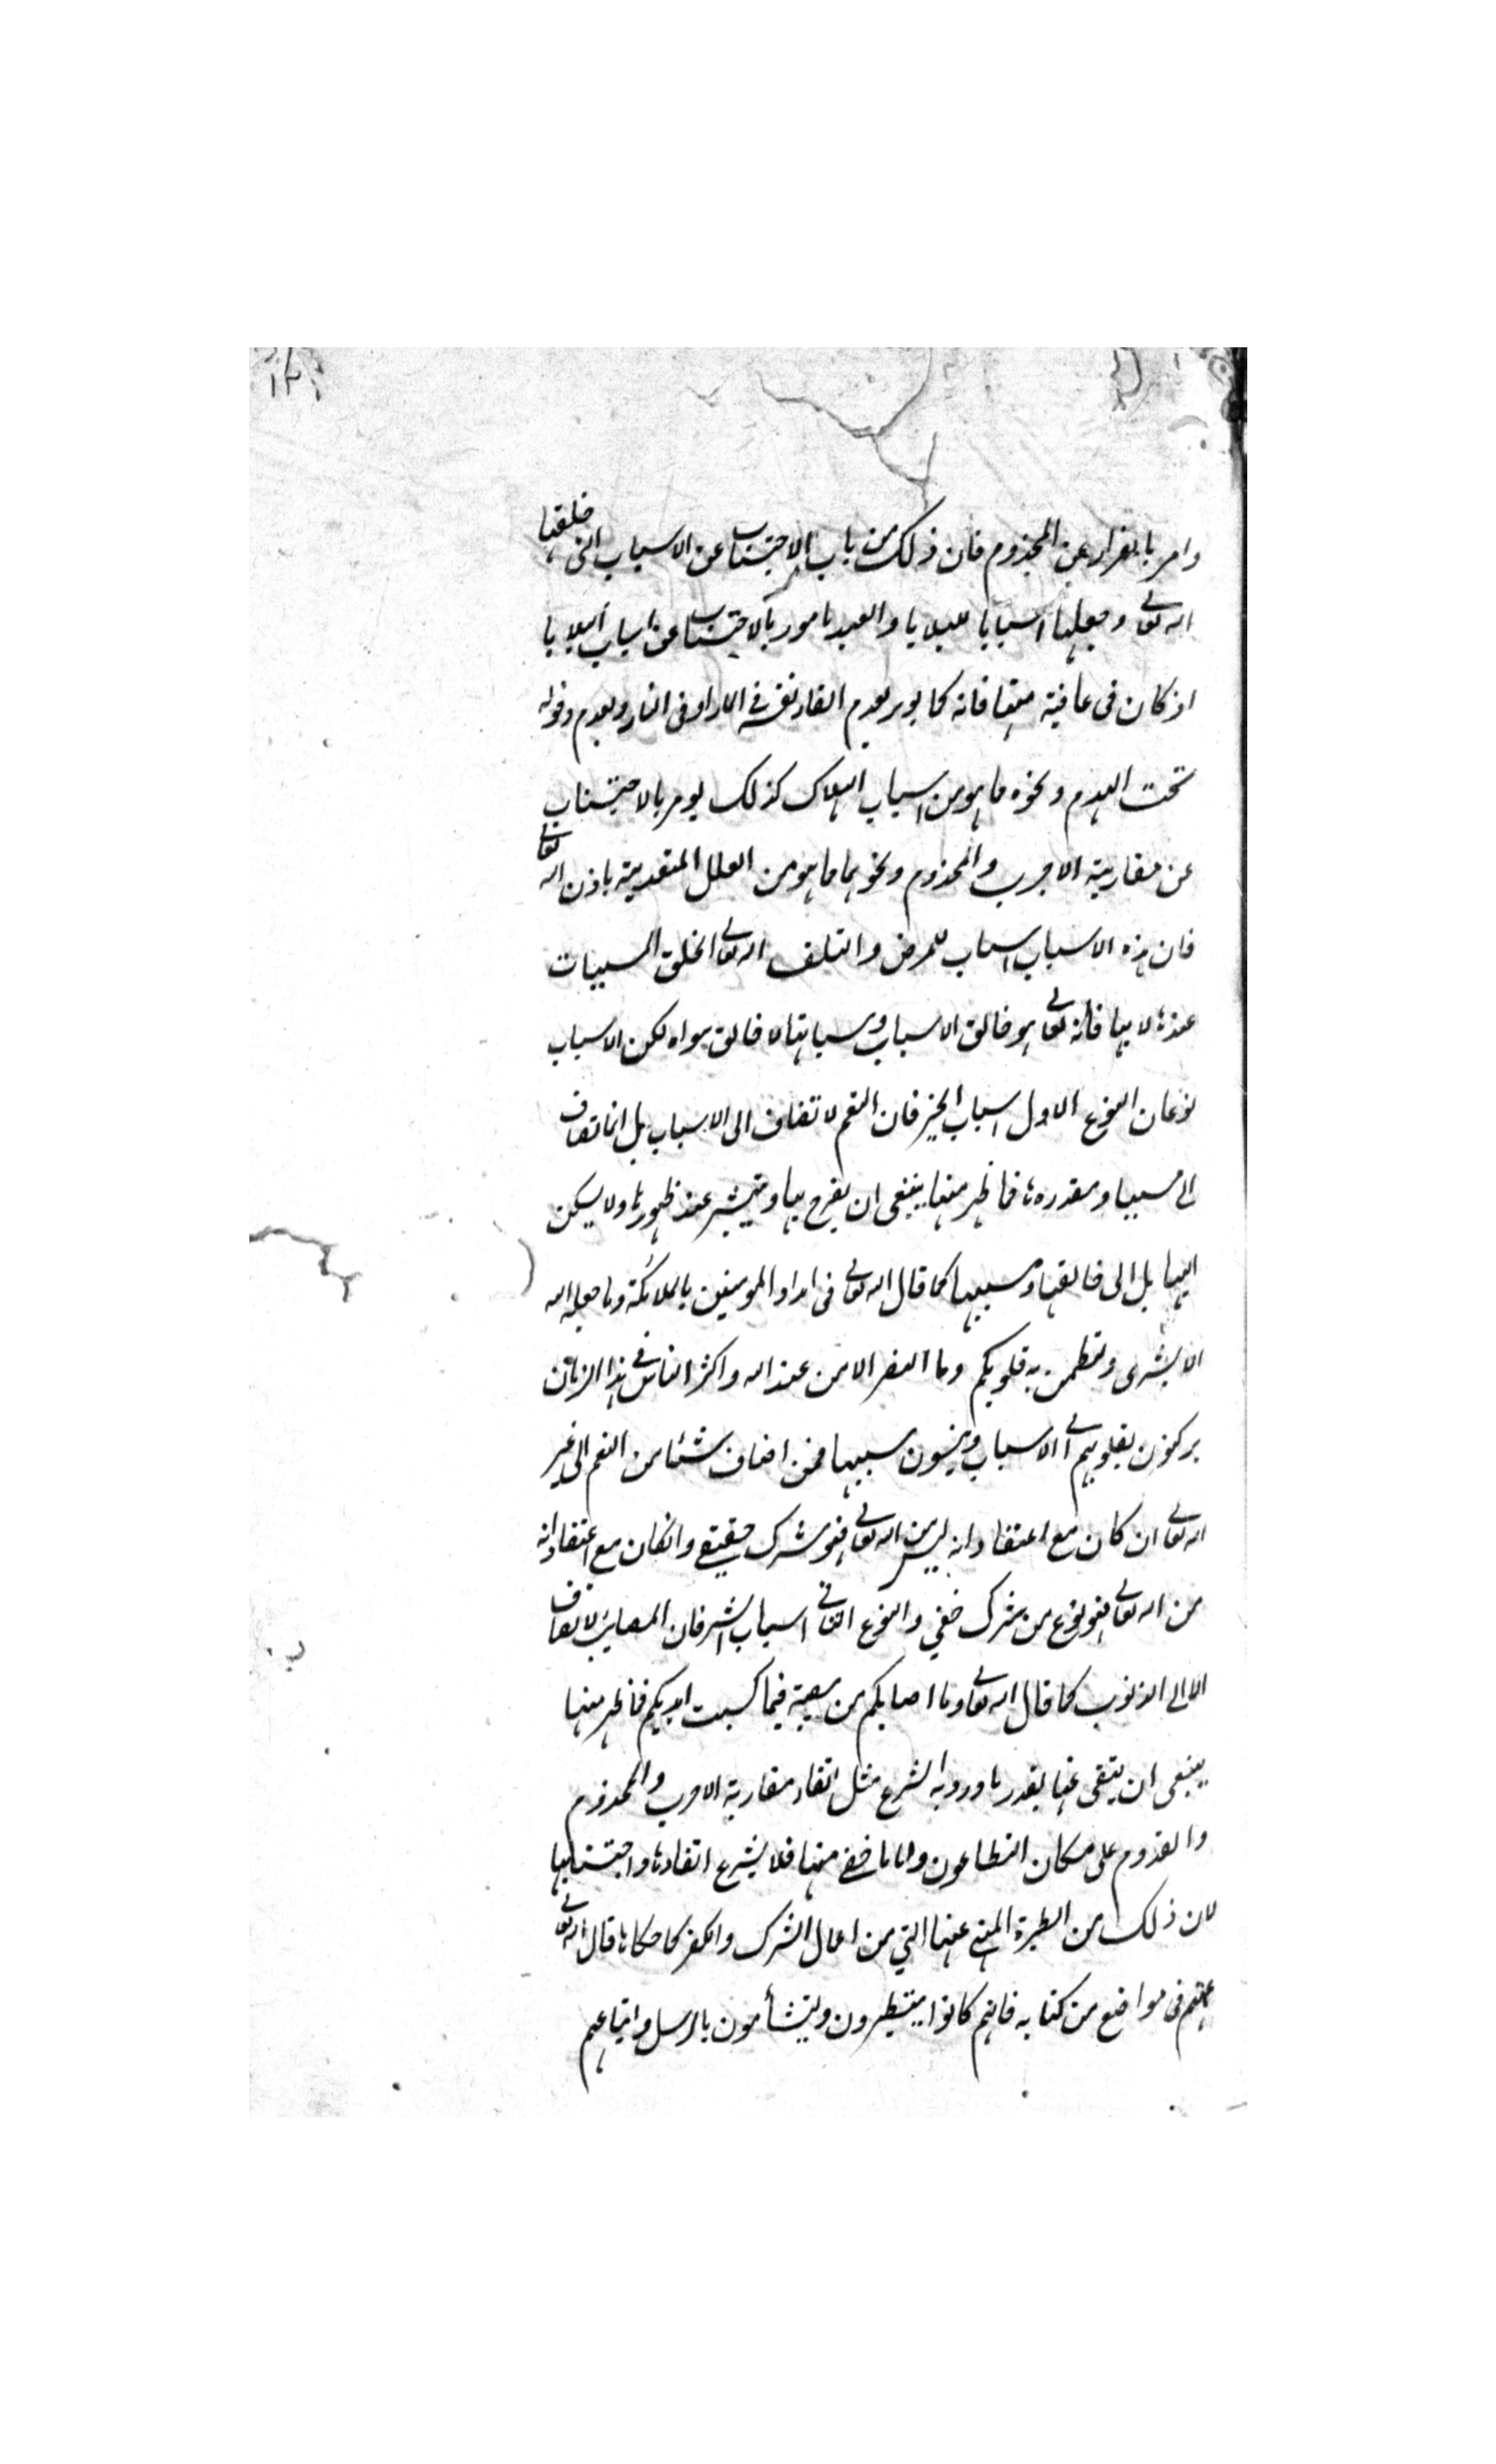 وامر بالفرار عن المجذوم فان ذلك من باب الاجتناب عن الاسباب التى خلقها
الله تعالى وجعلها اسبابا للبلايا والعبد مامور بالاجتناب عن اسباب البلايا
اذ كان فى عافية منها فانه كما يومر بعدم القاء نفسه فى الماء او فى النار وبعدم دخوله
تحت الهدم ونحوه مما هو من اسباب الهلاك كذلك يومر بالاجتناب
عن مقاربة الاجرب والمجذوم ونحوهما مما هو من العلل المتعدية باذن الله تعالى
فان هذه الاسباب اسباب للمرض والتلف الله تعالى خلق المسببات
عندها لا بها فانه تعالى هو خالق الاسباب ومسبباتها لا خالق سواه لكن الاسباب
نوعان النوع الاول اسباب الخير فان النعم لا تضاف الى الاسباب بل انما تضاف
الى مسببها ومقدرها فما ظهر منها ينبغى ان يفرح بها ويستبشر عند ظهورها ولا يسكن
اليها بل الى خالقها ومسببها كما قال الله تعالى فى امداد المومنين بالملائكة وما جعله الله
الا بشرى ولتطمئن به قلوبكم وما النصر الا من عند الله واكثر الناس فى هذا الزمان
يركنون بقلوبهم الى الاسباب وينسون مسببها فمن اضاف شئا من النعم الى غير
الله تعالى ان كان مع اعتقاد انه ليس من الله تعالى فهو شرك حقيقى وانكان مع اعتقاد انه
من الله تعالى فهو نوع من شرك خفي والنوع الثانى اسباب الشر فان المصايب لا تضاف
الا الى الذنوب كما قال الله تعالى وما اصابكم من مصيبة فيما كسبت ايديكم فما ظهر منها
ينبغى ان يتقى عنها بقدر ما ورد به الشرع مثل اتقاء مقاربة الاجرب والمجذوم
والقدوم على مكان الطاعون واما ما خفى منها فلا يشرع اتقاءها واجتنابها
لان ذلك من الطيرة المنهى عنها التي من اعمال الشرك والكفر كما حكاها قال الله تعالى
عنهم فى مواضع من كتابه فانهم كانوا يتطيرون ويتشأمون بالرسل واتباعهم